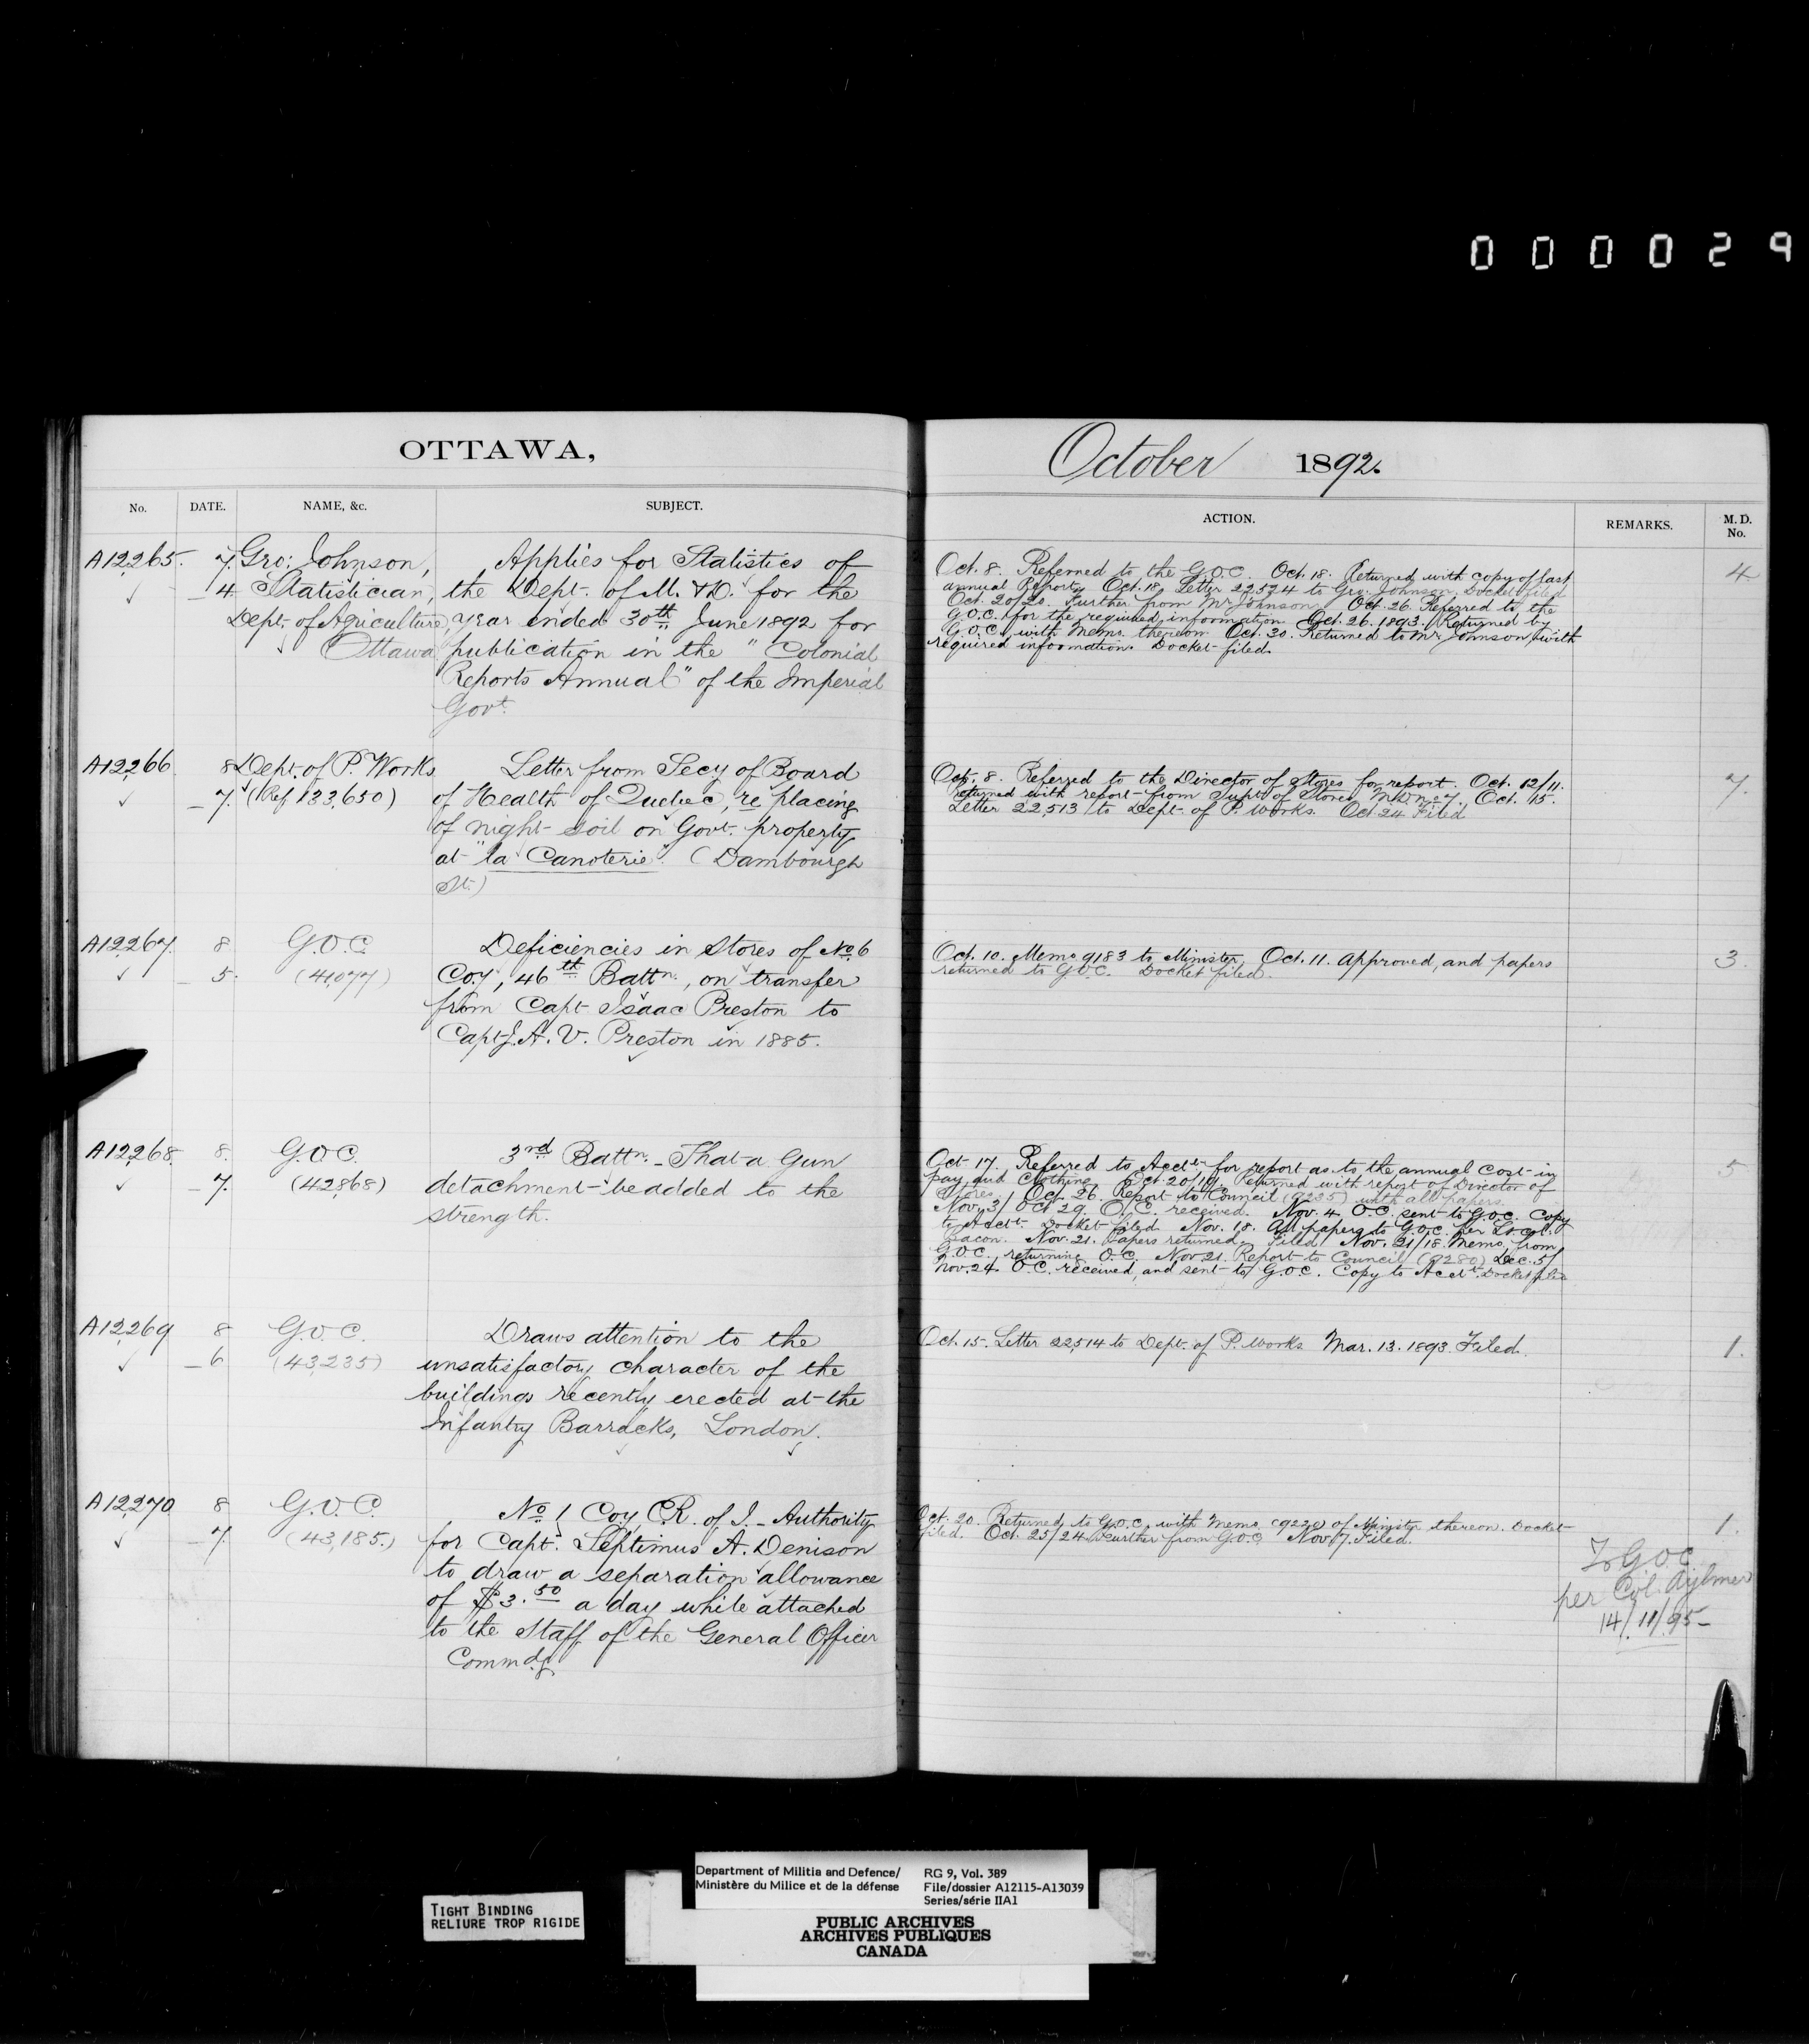 000029
OTTAWA,
No. DATE. NAME, &c. SUBJECT.
A12265. 7. Geo: Johnson, Applies for Statistics of
4 Statistician, the Dept. of M. & D. for the
Dept. of Agriculture, year ended 30th June 1892 for
Ottawa publication in the "Colonial
Reports Annual" of the Imperial
Govt.
A12266. 8 Dept. of P. Works Letter from Secy of Board
7. (Ref. 133,650) of Health of Quebec, re placing
of night-soil on Govt. property
at "la Canoterie". (Dambourgh
St.)
A12267. 8 G.O.C. Deficiencies in Stores of No. 6
5. (41,077) Coy, 46th Battn., on transfer
from Capt Isaac Preston to
Capt J. A. V. Preston in 1885.
A12268. 8. G.O.C. 3rd Battn. - That a Gun
7. (42,868) detachment be added to the
strength.
A12269 8 G.O.C. Draws attention to the
6 (43,235) unsatisfactory character of the
buildings recently erected at the
Infantry Barracks, London.
A12,270 8 G.O.C. No. 1 Coy C.R. of I. - Authority
7. (43,185.) for Capt. Septimus A. Denison
to draw a separation allowance
of $3.50 a day while attached
to the Staff of the General Officer
Commdg.
October 1892.
ACTION. REMARKS. M. D. No.
Oct. 8. Referred to the G.O.C. Oct. 18. Returned with copy of last 4
annual Report. Oct. 18. Letter 22,534 to Geo. Johnson. Docket filed
Oct. 20/20. Further from Mr Johnson. Oct. 26. Referred to the
G.O.C. for the required information. Oct. 26. 1893. Returned by
G.O.C. with Memo. thereon. Oct. 30. Returned to Mr Johnson with
required information. Docket filed.
Oct. 8. Referred to the Director of Stores for report. Oct. 12/11. 7.
Returned with report from Supt of Stores M.D. No 7. Oct. 15.
Letter 22,513 to Dept. of P. Works. Oct 24 Filed
Oct. 10. Memo 9183 to Minister, Oct. 11. approved, and papers 3.
returned to G.O.C. Docket filed.
Oct 17. Referred to Acctt for report as to the annual cost in 5
pay and clothing. Oct 20/19. Returned with report of Director of
Stores. Oct. 26. Report to Council (9235) with all papers.
Nov. 3/Oct 29. O.C. received. Nov. 4. O.C. sent to G.O.C. Copy
to Acctt. Docket filed. Nov. 18. All papers to G.O.C. per Lt. Col.
Bacon. Nov. 21. Papers returned. Filed Nov. 21/18. Memo. from
G.O.C. returning O.C. Nov. 21. Report to Council (9280) Dec. 5/
Nov. 24. O.C. received, and sent to G.O.C. Copy to Acctt. Docket filed
Oct. 15. Letter 22,514 to Dept. of P. Works Mar. 13. 1893. Filed. 1.
Oct. 20. Returned to G.O.C. with Memo (9220) of Minister thereon. Docket 1.
filed. Oct. 25/24. Further from G.O.C. Nov. 7. Filed.
To G.O.C.
per Col. Aylmer
14/11/95
Department of Militia and Defence/ RG 9, Vol. 389
Ministère du Milice et de la défense File/dossier A12115-A13039
Series/série IIA1
TIGHT BINDING
RELIURE TROP RIGIDE
PUBLIC ARCHIVES
ARCHIVES PUBLIQUES
CANADA